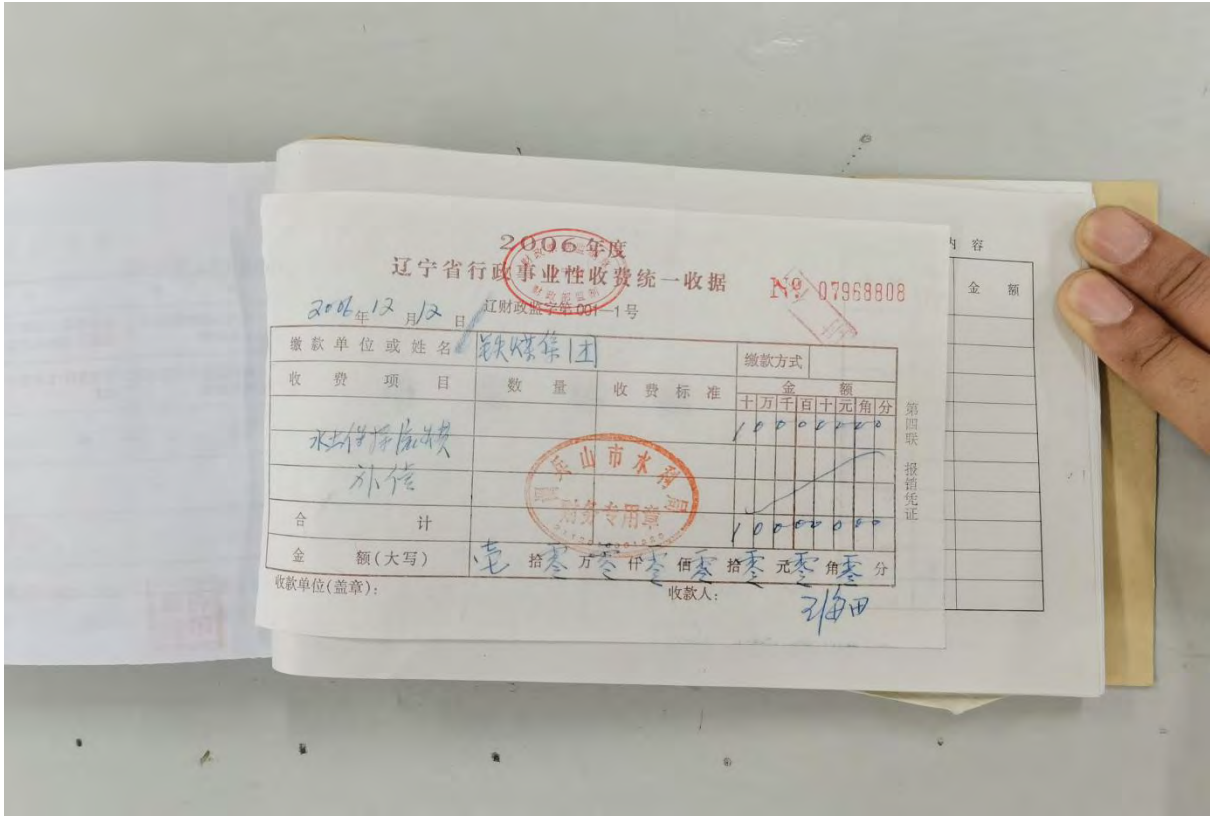 2006年度
辽宁省行政事业性收费统一收据
№ 07968808
2006年12月12日 辽财政监字第001—1号
缴款单位或姓名 铁煤集团 缴款方式
收费项目 数量 收费标准 金额
十万千百十元角分
水土保持 10000000
补偿
合计 10000000
金额(大写) 壹拾零万零仟零佰零拾零元零角零分
收款单位(盖章): 收款人:
第四联 报销凭证
山市水利局
财务专用章
内容
金额